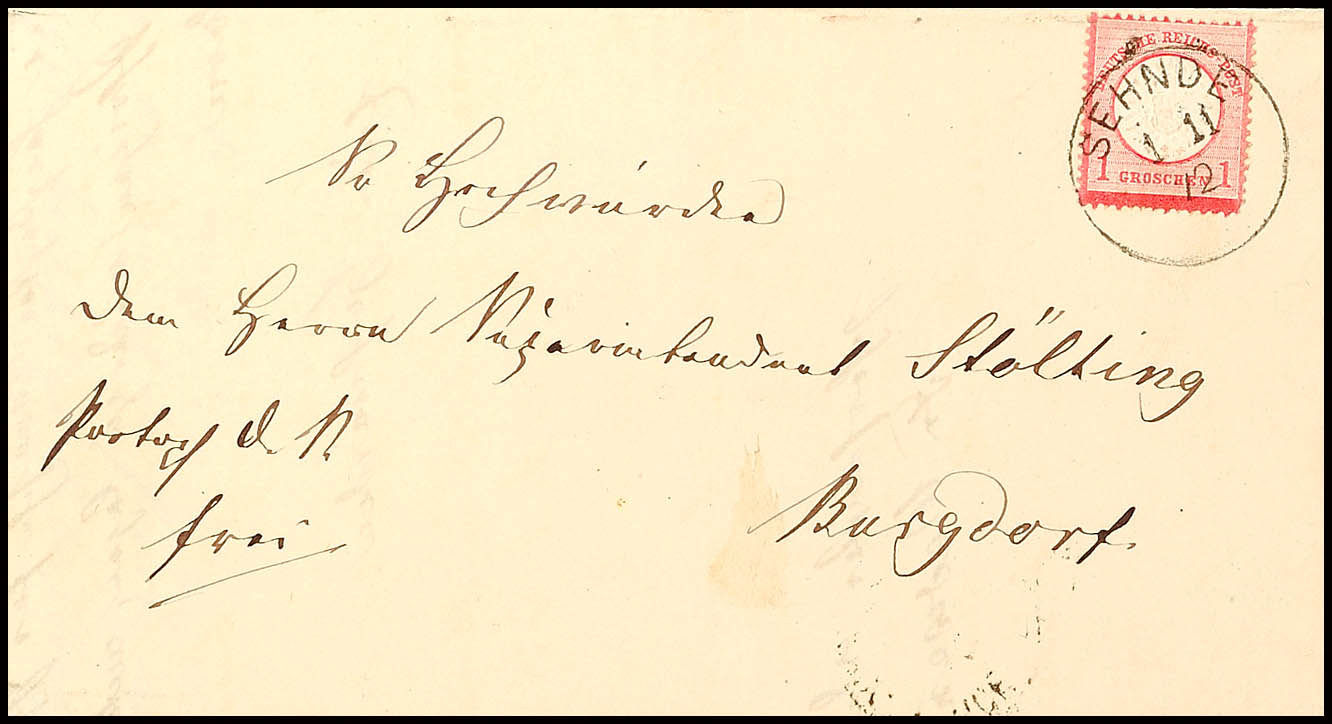 DEUTSCHE REICHS-POST
SEHNDE
1 11
12
1 GROSCHEN 1
Sr Hochwürden
dem Herrn Superintendent Stölting
d. R.
frei
Burgdorf.